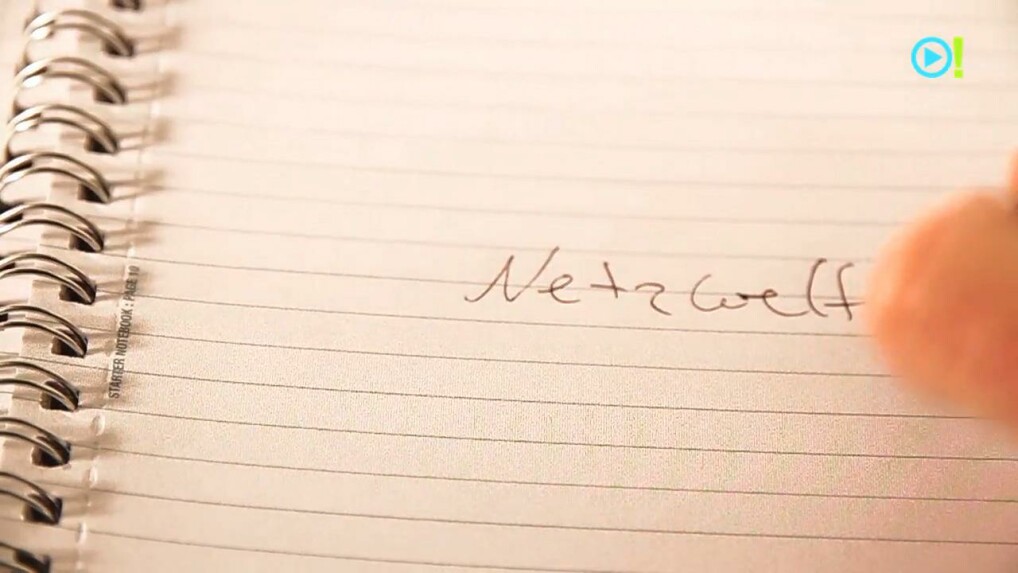 Netzwelt
STARTER NOTEBOOK : PAGE 19